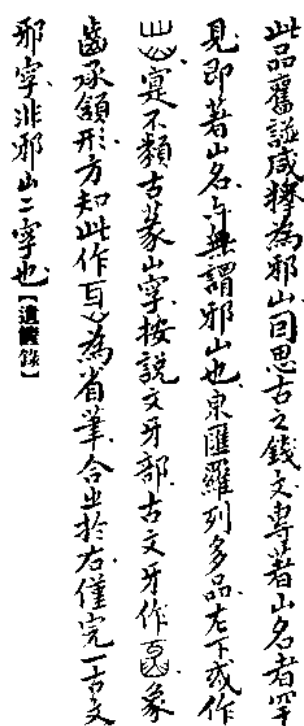 此品舊譜咸釋為邪山因思古之錢文專著山名者罕
見即著山名亦無謂邪山也東匯羅列多品左下或作
寔不類古篆山字按說文牙部古文牙作𤘈象
齒承頷形方知此作𤘈為省筆合㞢於右僅完一古文
邪字非邪山二字也【遺篋錄】